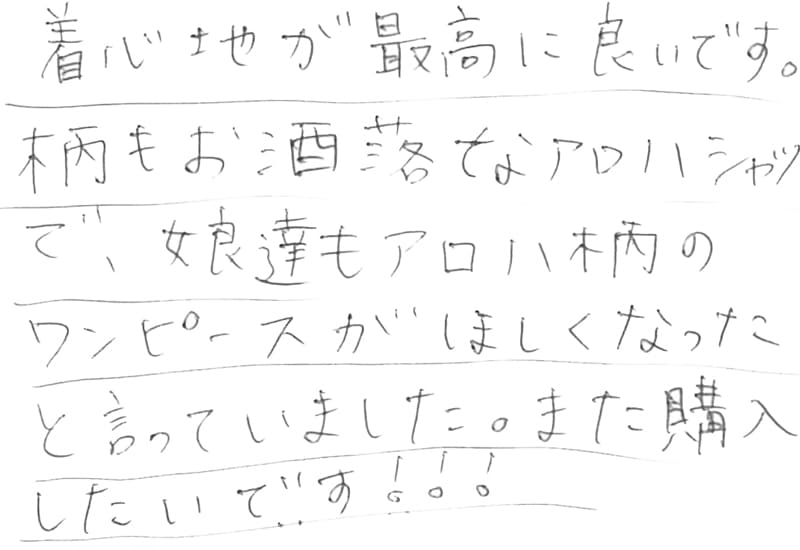 着心地が最高に良いです。
柄もお洒落でなアロハシャツ
で、娘達もアロハ柄の
ワンピースがほしくなった
と言っていました。また購入
したいです!!!